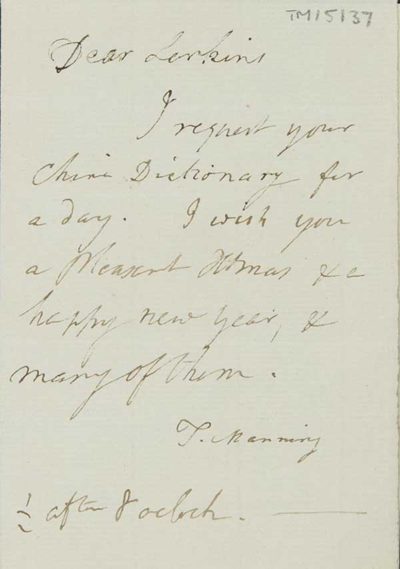 TM/5/37
Dear Larkins
I request your
China Dictionary for
a day. I wish you
a Pleasant Xtmas & a
happy new year, &
many of them.
T. Manning
½ after 8 oclock.